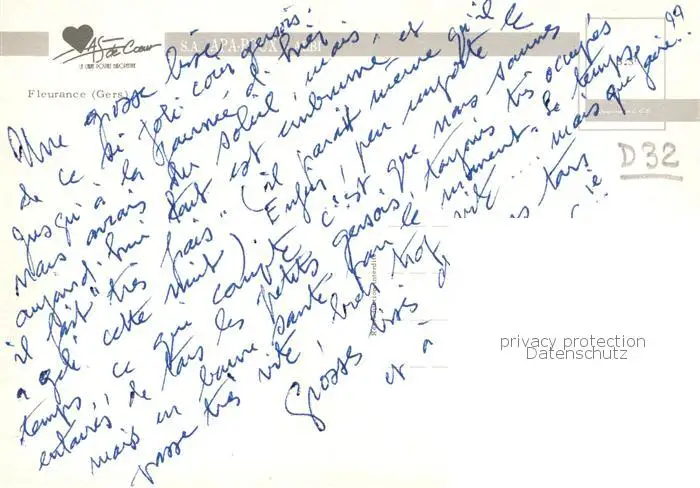 As de Cœur
LA CARTE POSTALE EUROPEENNE
S.A. APA-POUX ALBI
Fleurance (Gers)
D32
Une grosse bise
de ce si joli coin gersois.
Jusqu'à la journée d'hier
nous avions du soleil, mais
aujourd'hui tout est embrumé et
il fait "très frais" (il paraît même qu'il
a gelé cette nuit). Enfin, peu importe le
temps, ce qui compte c'est que nous sommes
entourés de tous les petits gersois, toujours très occupés
mais en bonne santé pour le moment. Le temps
passe très vite, bien trop vite ... mais que faire ??
Grosses bises
et à
privacy protection
Datenschutz